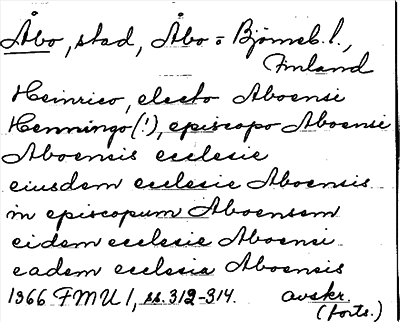 Åbo, stad, Åbo = Björneb. l.,
Finland
Heinrico, electo Aboensi
Henningo (!), episcopo Aboensi
Aboensis ecclesie
eiusdem ecclesie Aboensis
in episcopum Aboensem
eidem ecclesie Aboensi
eadem ecclesia Aboensis
1366 FMU 1, ss. 312-314. avskr.
(forts.)